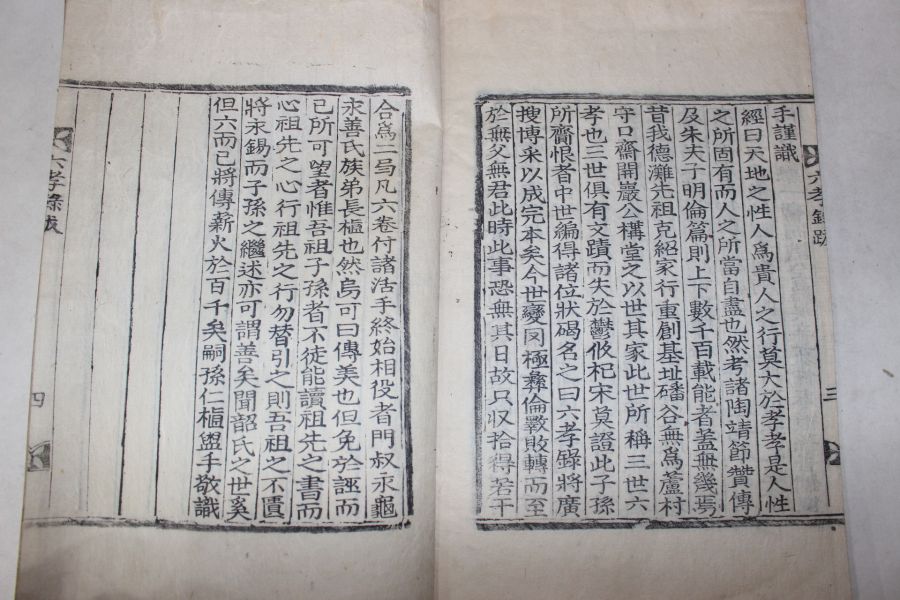 手謹識
經曰天地之性人爲貴人之行莫大於孝孝是人性
之所固有而人之所當自盡也然考諸陶靖節贊傳
及朱夫子明倫篇則上下數千百載能者盖無幾焉
昔我德灘先祖克紹家行重創基址磻谷無爲蘆村
守口齋開巖公構堂之以世其家此世所稱三世六
孝也三世俱有文蹟而失於鬱攸杞宋莫證此子孫
所齎恨者中世編得諸位狀碣名之曰六孝錄將廣
搜博采以成完本矣今世變罔極彝倫斁敗轉而至
於無父無君此時此事恐無其日故只収拾得若干
六孝錄跋
三
合爲二局凡六卷付諸活手終始相役者門叔永龜
永善氏族弟長樞也然烏可曰傳美也但免於誣而
已所可望者惟吾祖子孫者不徒能讀祖先之書而
心祖先之心行祖先之行勿替引之則吾祖之不匱
將永錫而子孫之繼述亦可謂善矣聞韶氏之世奚
但六而已將傳薪火於百千矣嗣孫仁樞盥手敬識
六孝錄跋
四